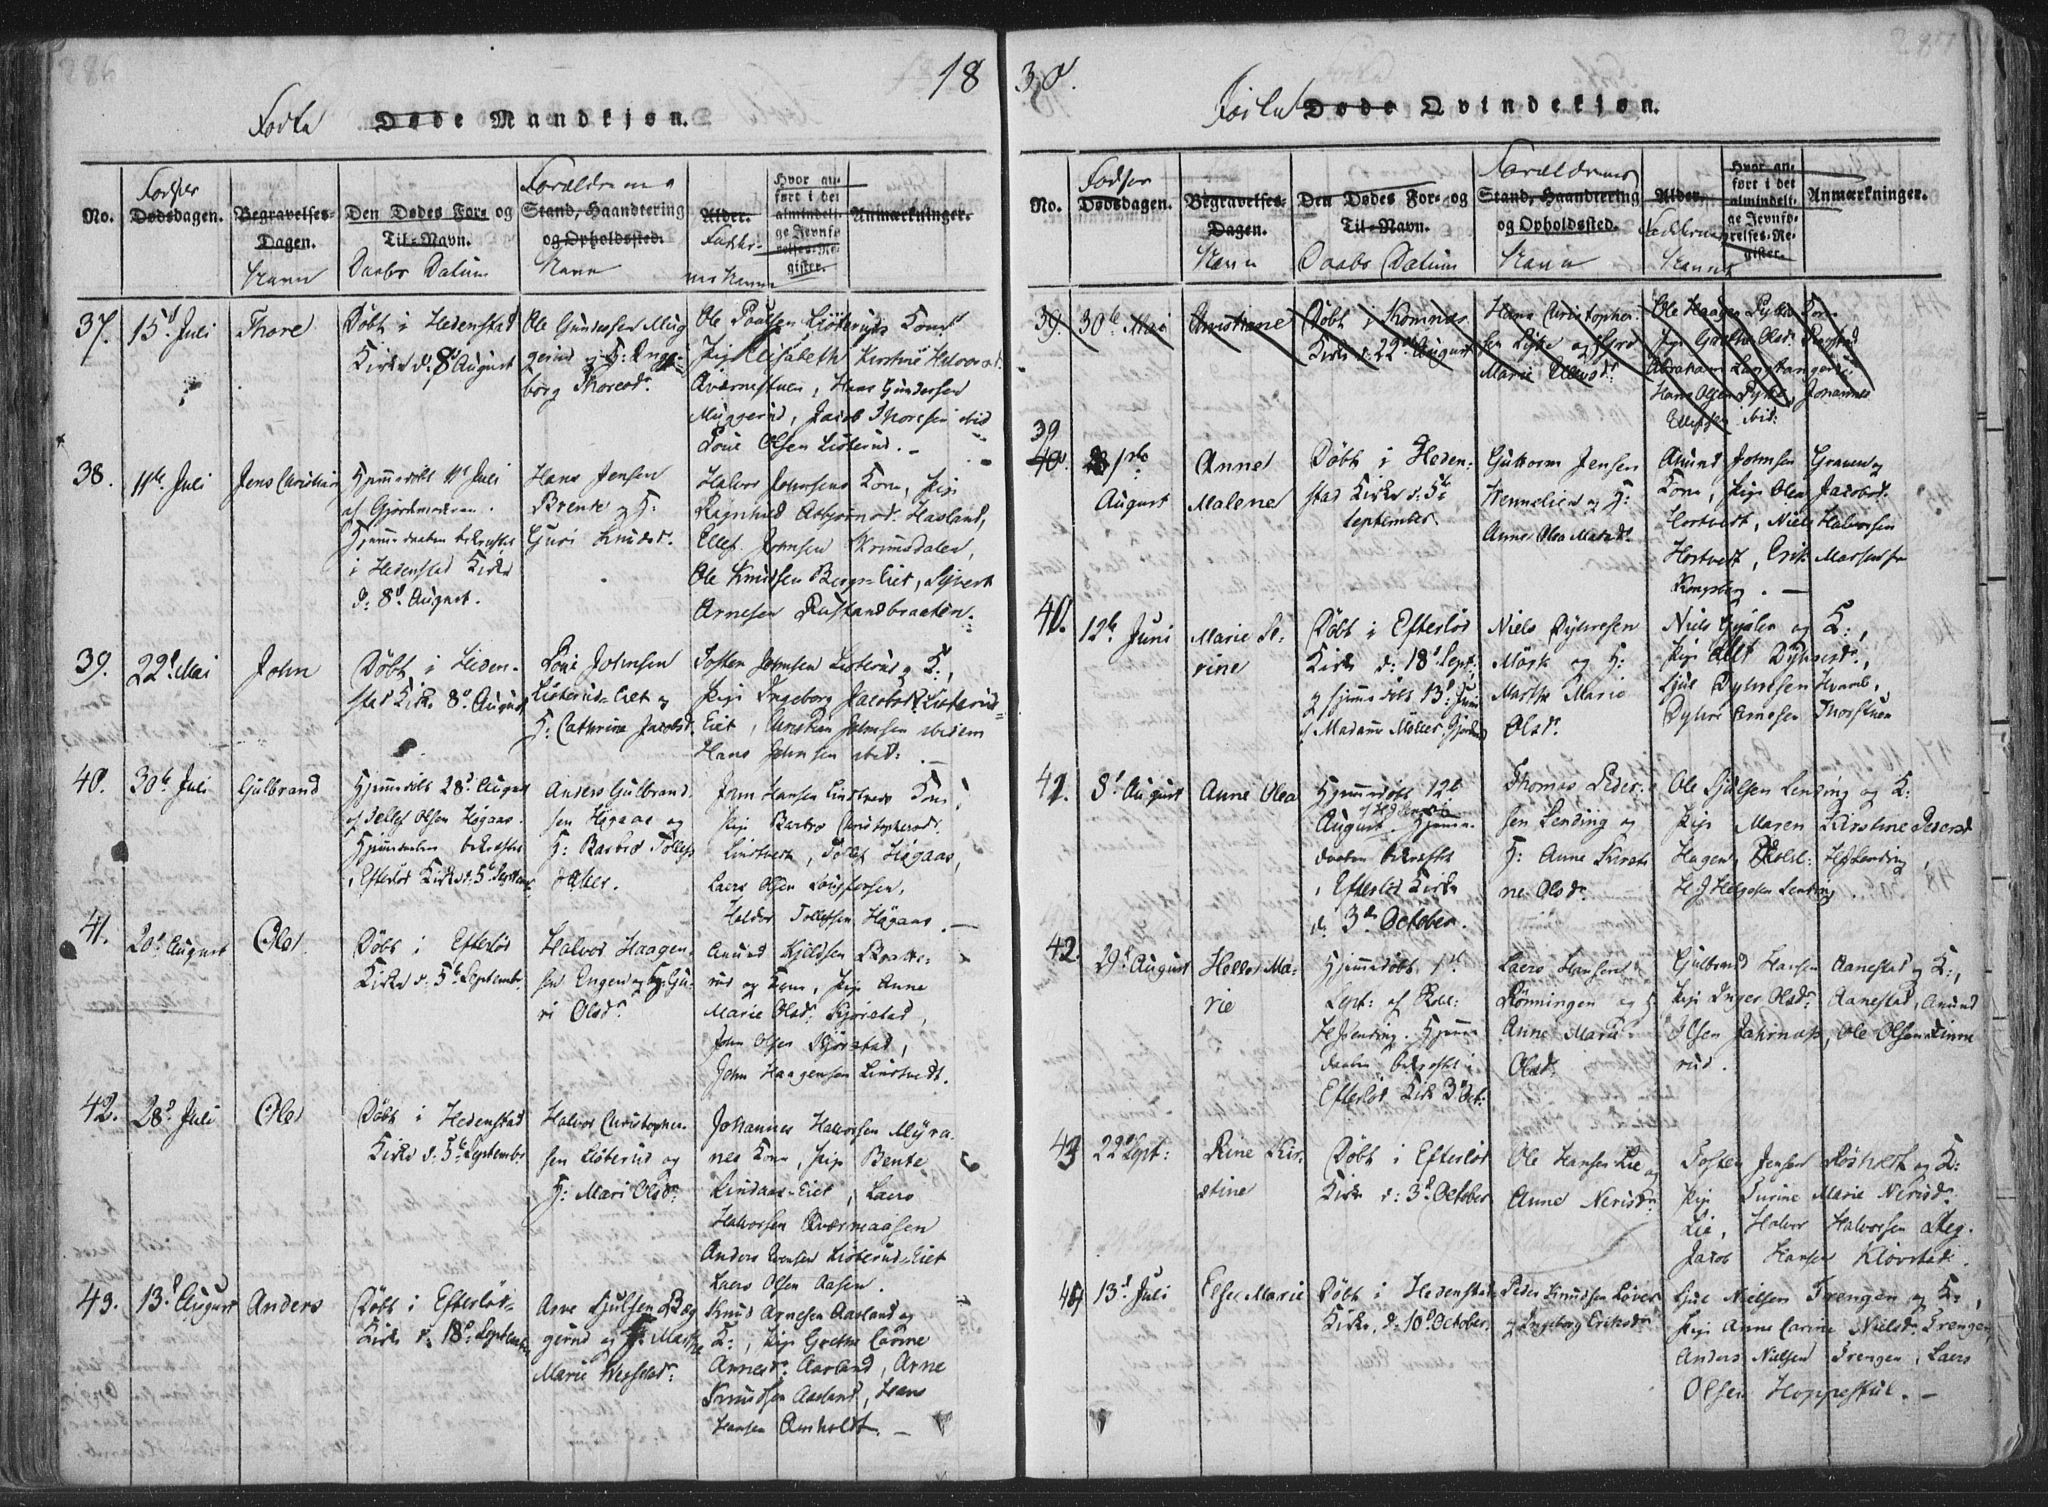 286
18
Fødte Døde Mandkjøn.
No.
Fødsels Dødsdagen.
Begravelses-Dagen.
Navn
Den Dødes For- og
Til-Navn.
Daabs Datum
Forældrenes
Stand, Haandtering
og Opholdssted.
Navn
Alder.
Navne
Hvor an-
ført i det
almindeli-
ge Jevnfø-
relses-Re-
gister.
Anmærkninger.
37.
15d Juli
Thore
Døbt i Hedenstad
Kirke d. 8d August
Ole Gundersen Mug
gerud og H: Inge-
borg Thoresdr.
Ole Paulsen Listeruds Kone
Pige Elisabeth Kirstine Halvorsd.
Hans Gundersen
Muggerud, Jacob Thoresen ibid
Olsen Listerud. -
38.
11te Juli
Jens Christian
Hjemmedøbt 11t Juli
af Gjordemoderen.
Hjemmedaaben bekræftet
i Hedenstad Kirke
d: 8d August.
Hans Jensen
Brente og H:
Guri Knudsdr.
Halvor Johnsens Kone, Pige
Ragnhild Asbjørnsd. Hasland,
Ellef Johnsen Skrimsdalen,
Ole Knudsen Bergs-Eiet, Syvert
Arnesen Rustandbraaten.
39.
22d Mai
John
Døbt i Heden-
stad Kirke 8d August
Johnsen
Listerud-Eiet og
H: Cathrine Jacobsd.
Tosten Johnsen Listerud og K:,
Pige Ingeborg Jacobsdr. Listerud-
Eiet, Christian Johnsen ibidem
Hans Johnsen ibid:
40.
30te Juli
Gulbrand
Hjemmedøbt 28d August
af Tellef Olsen Høgaas.
Hjemmedaaben bekræftet
i Efterløt Kirke d. 5t Septembr
Anders Gulbrand-
sen Høgaas og
H: Barbro Tollefs
datter.
John Hansen Lindtvedt Kone,
Pige Barbro Christophersdr.
Lindtvedt, Tollef Høgaas,
Laers Olsen
Halvor Tollefsen Høgaas. -
41.
20d August
Ole
Døbt i Efterløt
Kirke d. 5te Septembr
Halvor Haagen-
sen Engen og H: Gu-
ri Olsdr
Anund Kjeldsen
rud og Kone, Pige Anne
Marie Olsdr Gjørstad,
John Olsen Gjørstad,
John Haagensen Lindtvedt.
42.
28d Juli
Ole
Døbt i Hedenstad
Kirke d. 5te Septembr
Halvor Christopher-
sen Listerud og
H: Mari Olsdr
Johannes Halvorsen Myra-
nes Kone, Pige Bente
Lindaas-Eiet, Laers
Halvorsen Qværnaasen
Anders Evensen Listerud-Eiet
Laers Olsen Aasen.
43.
13d August
Anders
Døbt i Efterløt-
Kirke d. 18d Septembr
Arne Sjulsen Bæg
gerud og H: Marthe
Marie
Knud Arnesen Aasland og
K:, Pige Grethe Carine
Arnesdr. Aasland, Arne
Knudsen Aasland, Hans
Hansen Amholdt. -
287
30.
Fødte Døde Qvindekjøn.
No.
Fødsels Dødsdagen.
Begravelses-
Dagen.
Navn
Den Dødes For- og
Til-Navn.
Daabs Datum
Forældrenes
Stand, Haandtering
og Opholdssted.
Navn
Alder.
Faddrenes
Navne
Hvor an-
ført i det
almindeli-
ge Jevnfø-
relses-Re-
gister.
Anmærkninger.
39.
30te Mai
Christiane
Døbt i Komnæs
Kirke d. 22de August
Hans Christopher-
sen Lykke og
Marie Ellevsdr.
Ole Haagen Lykke Kone
Pige Grethe Olsdr
Abraham Langtangerie
Hans Olsen Lykke, Johannes
Ellefsen ibid:
39
40.
1ste
August
Anne
Malene
Døbt i Heden-
stad Kirke d: 5te
September.
Guttorm Jensen
og H:
Anne Olea Matsdr.
Anund Johnsen Graven og
Kone, Pige Olea Jacobsd.
Hostvedt, Niels Halvorsen
Hostvedt, Erik Marsen fra
Kongsberg. -
40.
12te Juni
Marie Se-
rine
Døbt i Efterløt
Kirke d: 18d Sept:
og hjemmedøbt 13d Juni
af Madame Møller Gjordem.
Niels Dyhresen
Mørk og H:
Marthe Marie
Olsdr.
Niels Gjølen og K:,
Pige Dyhresdr.,
Sjul Dyhresen Hvamb,
Dyhre Arnesen Thorstuen
41.
8d August
Anne Olea
Hjemmedøbt 12te
August. Hjemme-
daaben bekræftet
i Efterløt Kirke
d. 3de October.
Thomas Peder-
sen Lending og
H: Anne Kirsti-
ne Olsdr.
Ole Sjulsen Lending og K:
Pige Maren Kirstine Pedersd
Hagen,
H J Helgesen Lending.
42.
29d August
Helle Ma-
rie
Hjemmedøbt 1st
Sept: af
Hjemme-
daaben bekræftet i
Efterløt Kirke 3d Oct:
Laers Hansen
Rønningen og H
Anne Marie
Olsdr.
Gulbrand Hansen Aanestad og K:,
Pige Inger Olsdr Aanestad, Anund
Olsen Jahrnæs, Ole Olsen
rud.
43
22d Sept:
Rine Kir-
stine
Døbt i Efterløt
Kirke d: 3d October
Ole Hansen Lie og
Anne Nerisdr.
Tosten Jensen Røsholdt og K:
Pige Turine Marie Nerisdr.
Lie, Halvor Halvorsen Steg.
Jacob Hansen Klovstad.
44
13d Juli
Else Marie
Døbt i Hedenstad
Kirke, d: 10d October.
Peder Knudsen Løver
og Ingeborg Eriksdr
Sjul Nielsen Trengen og K:,
Pige Anne Carine Nielsdr. Trengen,
Anders Nielsen Trengen, Laers
Olsen Hoppestul. -